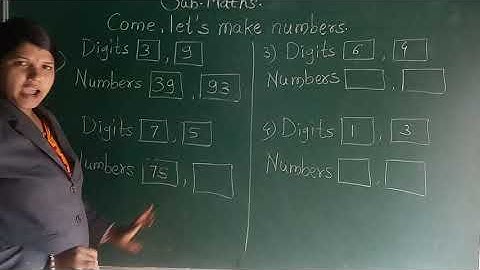 Sub-Maths.
Come, let's make numbers.
) Digits 3 , 9
Numbers 39 , 93
Digits 7 , 5
umbers 75 ,
3) Digits 6 , 4
Numbers ,
4) Digits 1 , 3
Numbers ,